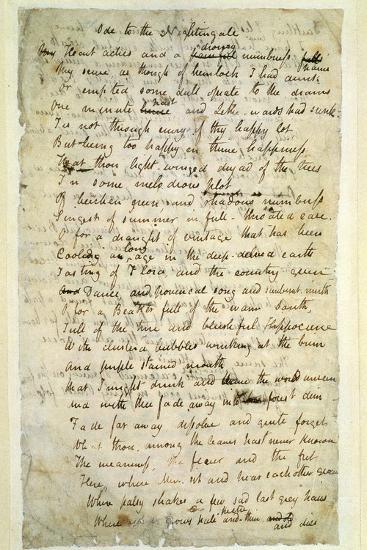 Ode to the Nightingale
My Heart aches and a drowsy numbness
My sense as though of hemlock I had drunk
Or emptied some dull opiate to the drains
One minute past and Lethe-wards had sunk
Tis not through envy of thy happy lot
But being too happy in thine happiness
That thou light-winged dryad of the trees
In some melodious plot
Of beechen green and shadows numberless
Singest of summer in full-throated ease.
O for a draught of vintage that has been
Cooling an age in the deep-delved earth
Tasting of Flora and the country green
Dance, and provencal song and sunburnt mirth
O for a Beaker full of the warm South,
Full of the true and blushful Hippocrene
With cluster'd bubbles winking at the brim
And purple stained mouth
That I might drink and leave the world unseen
And with thee fade away into the forest dim
Fade far away dissolve and quite forget
What thou among the leaves hast never known
The weariness, the fever and the fret
Here, where Men sit and hear each other groan
Where palsy shakes a few sad last grey hairs
Where youth grows pale and thin and dies